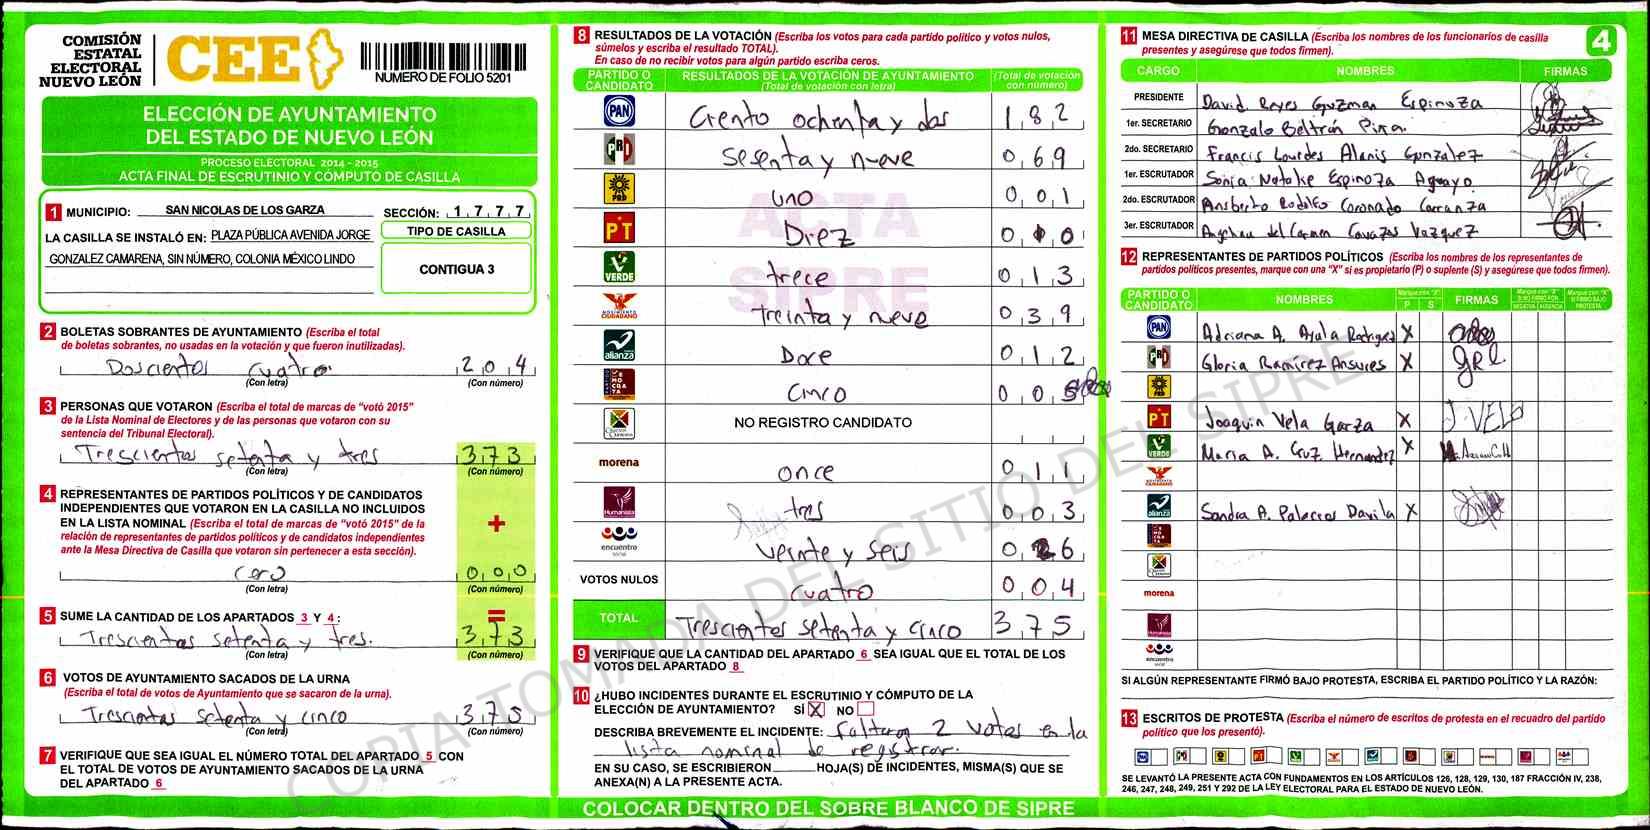 COMISIÓN
ESTATAL
ELECTORAL
NUEVO LEÓN
CEE
NUMERO DE FOLIO 5201
ELECCIÓN DE AYUNTAMIENTO
DEL ESTADO DE NUEVO LEÓN
PROCESO ELECTORAL 2014 - 2015
ACTA FINAL DE ESCRUTINIO Y CÓMPUTO DE CASILLA
1 MUNICIPIO: SAN NICOLAS DE LOS GARZA SECCIÓN: 1 7 7 7
LA CASILLA SE INSTALÓ EN: PLAZA PÚBLICA AVENIDA JORGE
GONZALEZ CAMARENA, SIN NÚMERO, COLONIA MÉXICO LINDO
TIPO DE CASILLA
CONTIGUA 3
2 BOLETAS SOBRANTES DE AYUNTAMIENTO (Escriba el total
de boletas sobrantes, no usadas en la votación y que fueron inutilizadas).
Doscientos cuatro 2 0 4
(Con letra) (Con número)
3 PERSONAS QUE VOTARON (Escriba el total de marcas de “votó 2015”
de la Lista Nominal de Electores y de las personas que votaron con su
sentencia del Tribunal Electoral).
Trescientos setenta y tres 373
(Con letra) (Con número)
4 REPRESENTANTES DE PARTIDOS POLÍTICOS Y DE CANDIDATOS
INDEPENDIENTES QUE VOTARON EN LA CASILLA NO INCLUIDOS
EN LA LISTA NOMINAL (Escriba el total de marcas de “votó 2015” de la
relación de representantes de partidos políticos y de candidatos independientes
ante la Mesa Directiva de Casilla que votaron sin pertenecer a esta sección).
+
cero 0 0 0
(Con letra) (Con número)
=
5 SUME LA CANTIDAD DE LOS APARTADOS 3 Y 4:
Trescientos setenta y tres. 373
(Con letra) (Con número)
6 VOTOS DE AYUNTAMIENTO SACADOS DE LA URNA
(Escriba el total de votos de Ayuntamiento que se sacaron de la urna).
Trescientos setenta y cinco 375
(Con letra) (Con número)
7 VERIFIQUE QUE SEA IGUAL EL NÚMERO TOTAL DEL APARTADO 5 CON
EL TOTAL DE VOTOS DE AYUNTAMIENTO SACADOS DE LA URNA
DEL APARTADO 6
8 RESULTADOS DE LA VOTACIÓN (Escriba los votos para cada partido político y votos nulos,
súmelos y escriba el resultado TOTAL).
En caso de no recibir votos para algún partido escriba ceros.
PARTIDO O CANDIDATO RESULTADOS DE LA VOTACIÓN DE AYUNTAMIENTO (Total de votación con letra) (Total de votación con número)
PAN Ciento ochenta y dos 1 8 2
PRD sesenta y nueve 0 6 9
PRD uno 0 0 1
PT Diez 0 1 0
VERDE trece 0 1 3
MOVIMIENTO CIUDADANO treinta y nueve 0 3 9
alianza Doce 0 1 2
cinco 0 0 5
NO REGISTRO CANDIDATO
morena once 0 1 1
Humanista tres 0 0 3
encuentro social veinte y seis 0 2 6
VOTOS NULOS cuatro 0 0 4
TOTAL Trescientos setenta y cinco 375
9 VERIFIQUE QUE LA CANTIDAD DEL APARTADO 6 SEA IGUAL QUE EL TOTAL DE LOS
VOTOS DEL APARTADO 8
10 ¿HUBO INCIDENTES DURANTE EL ESCRUTINIO Y CÓMPUTO DE LA
ELECCIÓN DE AYUNTAMIENTO? SÍ X NO
DESCRIBA BREVEMENTE EL INCIDENTE: faltaron 2 votos en la
lista nominal de registrar.
EN SU CASO, SE ESCRIBIERON ____ HOJA(S) DE INCIDENTES, MISMA(S) QUE SE
ANEXA(N) A LA PRESENTE ACTA.
COLOCAR DENTRO DEL SOBRE BLANCO DE SIPRE
4
11 MESA DIRECTIVA DE CASILLA (Escriba los nombres de los funcionarios de casilla
presentes y asegúrese que todos firmen).
CARGO NOMBRES FIRMAS
PRESIDENTE David Reyes Guzman Espinoza
1er. SECRETARIO Gonzalo Beltrán Pira
2do. SECRETARIO Francis Lourdes Alanis Gonzalez
1er. ESCRUTADOR Sonia Natalie Espinoza Aguayo
2do. ESCRUTADOR Ansberto Rodolfo Coronado Carranza
3er. ESCRUTADOR del Carmen Cavazos Vazquez
12 REPRESENTANTES DE PARTIDOS POLÍTICOS (Escriba los nombres de los representantes de
partidos políticos presentes, marque con una “X” si es propietario (P) o suplente (S) y asegúrese que todos firmen).
PARTIDO O CANDIDATO NOMBRES Marque con "X" P S FIRMAS
PAN Adriana A. Ayala Rodriguez X
PRD Gloria Ramirez Ansures X GRL
PRD
PT Joaquin Vela Garza X J. VELA
VERDE Maria A. Cruz Hernandez X
alianza Sandra A. Palacios Davila X
morena
Humanista
encuentro social
SI ALGÚN REPRESENTANTE FIRMÓ BAJO PROTESTA, ESCRIBA EL PARTIDO POLÍTICO Y LA RAZÓN:
13 ESCRITOS DE PROTESTA (Escriba el número de escritos de protesta en el recuadro del partido
político que los presentó).
SE LEVANTÓ LA PRESENTE ACTA CON FUNDAMENTOS EN LOS ARTÍCULOS 126, 128, 129, 130, 187 FRACCIÓN IV, 238,
246, 247, 248, 249, 251 Y 292 DE LA LEY ELECTORAL PARA EL ESTADO DE NUEVO LEÓN.
ACTA
SIPRE
COPIA TOMADA DEL SITIO DEL SIPRE